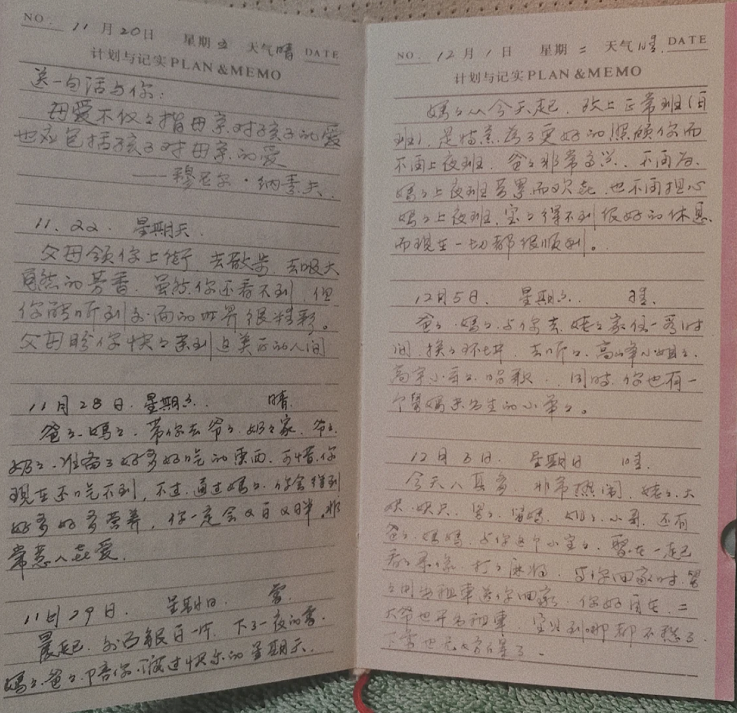 NO. 11月20日 星期五 天气晴 DATE
计划与记实 PLAN & MEMO
送一句话与你:
母爱不仅仅指母亲对孩子的爱
也应包括孩子对母亲的爱
——穆尼尔·纳素夫.
11. 22. 星期天.
父母领你上街 去散步 去吸大
自然的芳香. 虽然你还看不到, 但
你能听到外面的世界很精彩。
父母盼你快快来到这美丽的人间
11月28日. 星期六. 晴.
爸爸、妈妈、带你去爷爷、奶奶家. 爷爷、
奶奶、准备了好多好吃的东西. 可惜你
现在还吃不到, 不过. 通过妈妈、你会得到
好多好多营养, 你一定会又白又胖. 非
常惹人喜爱.
11月29日. 星期日. 雪.
晨起. 外面银白一片. 下了一夜的雪.
妈妈、爸爸、陪你、渡过快乐的星期天.
NO. 12月1日 星期二 天气晴. DATE
计划与记实 PLAN & MEMO
妈妈从今天起. 改上正常班(白
班). 是特意为了更好的照顾你而
不再上夜班. 爸爸非常高兴. 不再为
妈妈上夜班劳累而 也不用担心
妈妈上夜班. 宝宝得不到很好的休息.
而现在一切都很顺利。
12月5日. 星期六. 晴.
爸爸、妈妈、与你去姥姥家住一段时
间. 换换环境. 去听听. 高峰小姐姐、
高 小哥哥、唱歌.. 同时. 你也有一
个舅妈未出生的小弟弟。
12月6日. 星期日 晴.
今天人真多. 非常热闹. 姥姥、大
姨、 舅舅、舅妈、姐姐、小哥、还有
爸爸、妈妈、与你这个小宝宝. 聚在一起
打打麻将. 与你回家时
出租车 你回家. 你好自在.
也开出租车. 宝贝到哪都不愁了.